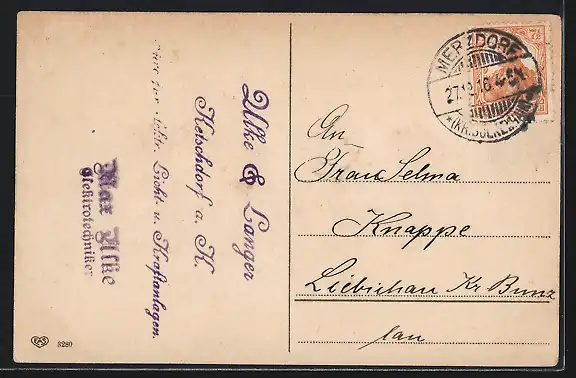 Ulke & Langer
Ketschdorf a. K.
Büro für elektr. Licht- u. Kraftanlagen.
Max Ulke
Elektrotechniker
EAS
3280
MERZDORF
27. 16. 4-5N
*(KR.BOLKENHAIN)
7½
An
Frau Selma
Knappe
Liebichau Kr Bunz
lau